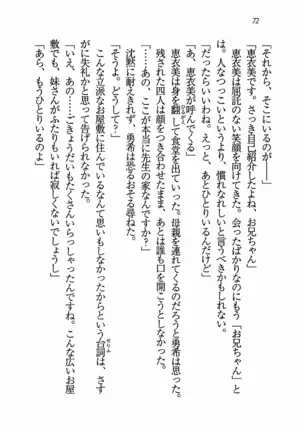 72
「それから、そこにいるのが――」
「恵衣美です。さっき自己紹介してたよね、お兄ちゃん」
恵衣美は屈託のない笑顔を向けてきた。会ったばかりなのにもう「お兄ちゃん」と
は。人なつっこいというより、慣れなれしいと言うべきかもしれない。
「だったらいいわね。えっと、あとひとりいるんだけど」
「あたしが呼んでくる」
恵衣美は身を翻して食堂を出ていった。母親を連れてくるのだろうと勇希は思った。
残された四人は顔をつき合わせたまま、あとは誰も口を開こうとしない。
「……あの、ここが本当に先生の家なんですか?」
沈黙に耐えきれず、勇希は恐るおそる尋ねた。
「そうよ。どうして?」
こんな立派なお屋敷に住んでいるなんて思いもしなかったからという台詞は、さす
せりふ
がに失礼に思って告げられなかった。
「いえ、あの……ごきょうだいもたくさんいらっしゃったんですね。こんな広いお屋
敷でも、妹さんがふたりもいれば寂しくないでしょうし」
「あら、もうひとりいるのよ」